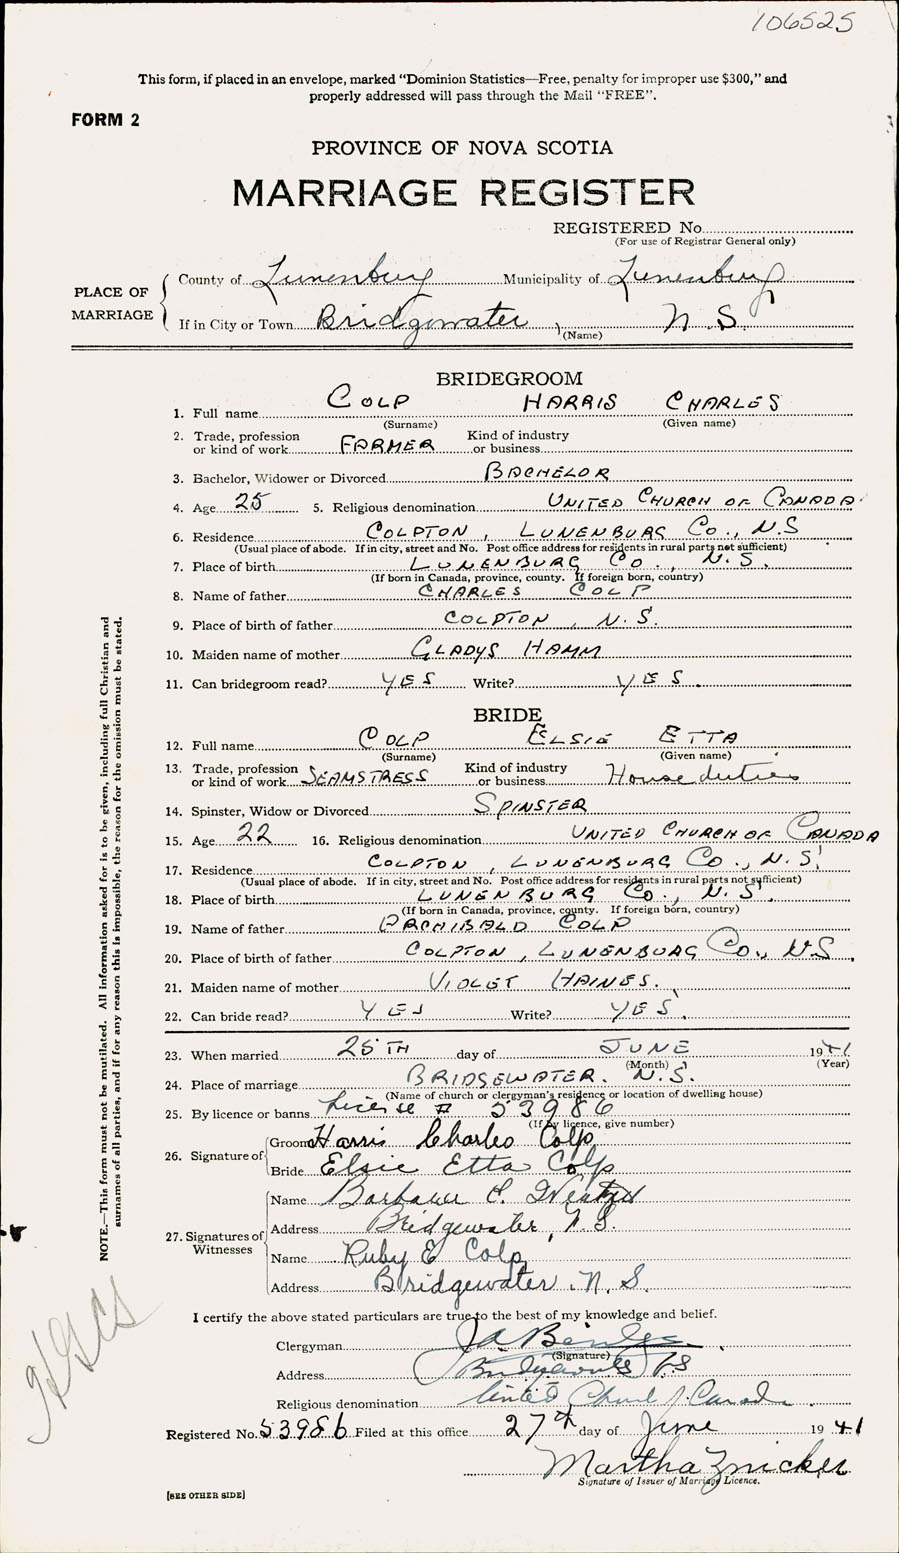 106525
This form, if placed in an envelope, marked "Dominion Statistics—Free, penalty for improper use $300," and
properly addressed will pass through the Mail "FREE".
FORM 2
PROVINCE OF NOVA SCOTIA
MARRIAGE REGISTER
REGISTERED No.
(For use of Registrar General only)
PLACE OF MARRIAGE
County of Lunenburg Municipality of Lunenburg
If in City or Town Bridgewater, N.S.
(Name)
BRIDEGROOM
1. Full name COLP HARRIS CHARLES
(Surname) (Given name)
2. Trade, profession or kind of work FARMER Kind of industry or business
3. Bachelor, Widower or Divorced BACHELOR
4. Age 25 5. Religious denomination UNITED CHURCH OF CANADA
6. Residence COLPTON, LUNENBURG CO., N.S
(Usual place of abode. If in city, street and No. Post office address for residents in rural parts not sufficient)
7. Place of birth LUNENBURG CO., N.S.
(If born in Canada, province, county. If foreign born, country)
8. Name of father CHARLES COLP
9. Place of birth of father COLPTON, N.S.
10. Maiden name of mother GLADYS HAMM
11. Can bridegroom read? YES Write? YES.
BRIDE
12. Full name COLP ELSIE ETTA
(Surname) (Given name)
13. Trade, profession or kind of work SEAMSTRESS Kind of industry or business House duties
14. Spinster, Widow or Divorced SPINSTER
15. Age 22 16. Religious denomination UNITED CHURCH OF CANADA
17. Residence COLPTON, LUNENBURG CO., N.S.
(Usual place of abode. If in city, street and No. Post office address for residents in rural parts not sufficient)
18. Place of birth LUNENBURG CO., N.S.
(If born in Canada, province, county. If foreign born, country)
19. Name of father ARCHIBALD COLP
20. Place of birth of father COLPTON, LUNENBURG CO., N.S.
21. Maiden name of mother VIOLET HAINES.
22. Can bride read? YES Write? YES.
23. When married 25TH day of JUNE 1941
(Month) (Year)
24. Place of marriage BRIDGEWATER. N.S.
(Name of church or clergyman's residence or location of dwelling house)
25. By licence or banns License # 53986
(If by licence, give number)
26. Signature of
Groom Harris Charles Colp
Bride Elsie Etta Colp
27. Signatures of Witnesses
Name
Address Bridgewater, N.S.
Name Ruby E Colp
Address Bridgewater. N.S.
I certify the above stated particulars are true to the best of my knowledge and belief.
Clergyman
(Signature)
Address Bridgewater N S
Religious denomination United Church of Canada
Registered No. 53986 Filed at this office 27th day of June 1941
Martha Zwicker
Signature of Issuer of Marriage Licence.
[SEE OTHER SIDE]
NOTE.—This form must not be mutilated. All information asked for is to be given, including full Christian and
surnames of all parties, and if for any reason this is impossible, the reason for the omission must be stated.